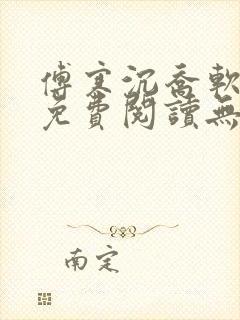 傅寒沉喬軟
免費閱讀無
南定